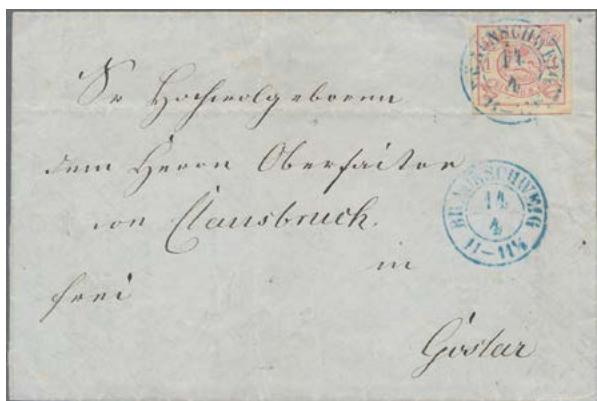 BRAUNSCHWEIG
14
4
11-11½
Sr Hochwolgeboren
dem Herrn Oberfactor
von Clausbruch.
BRAUNSCHWEIG
14
4
11-11½
in
frei
Goslar